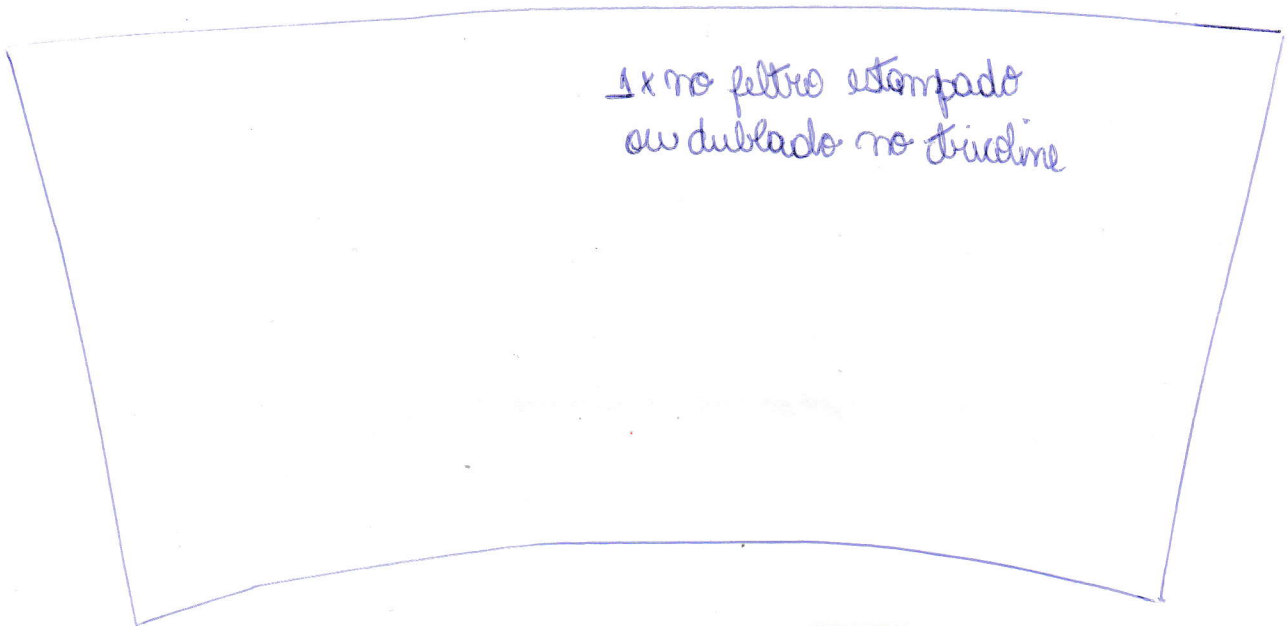 1x no feltro estampado
ou dublado no tricoline